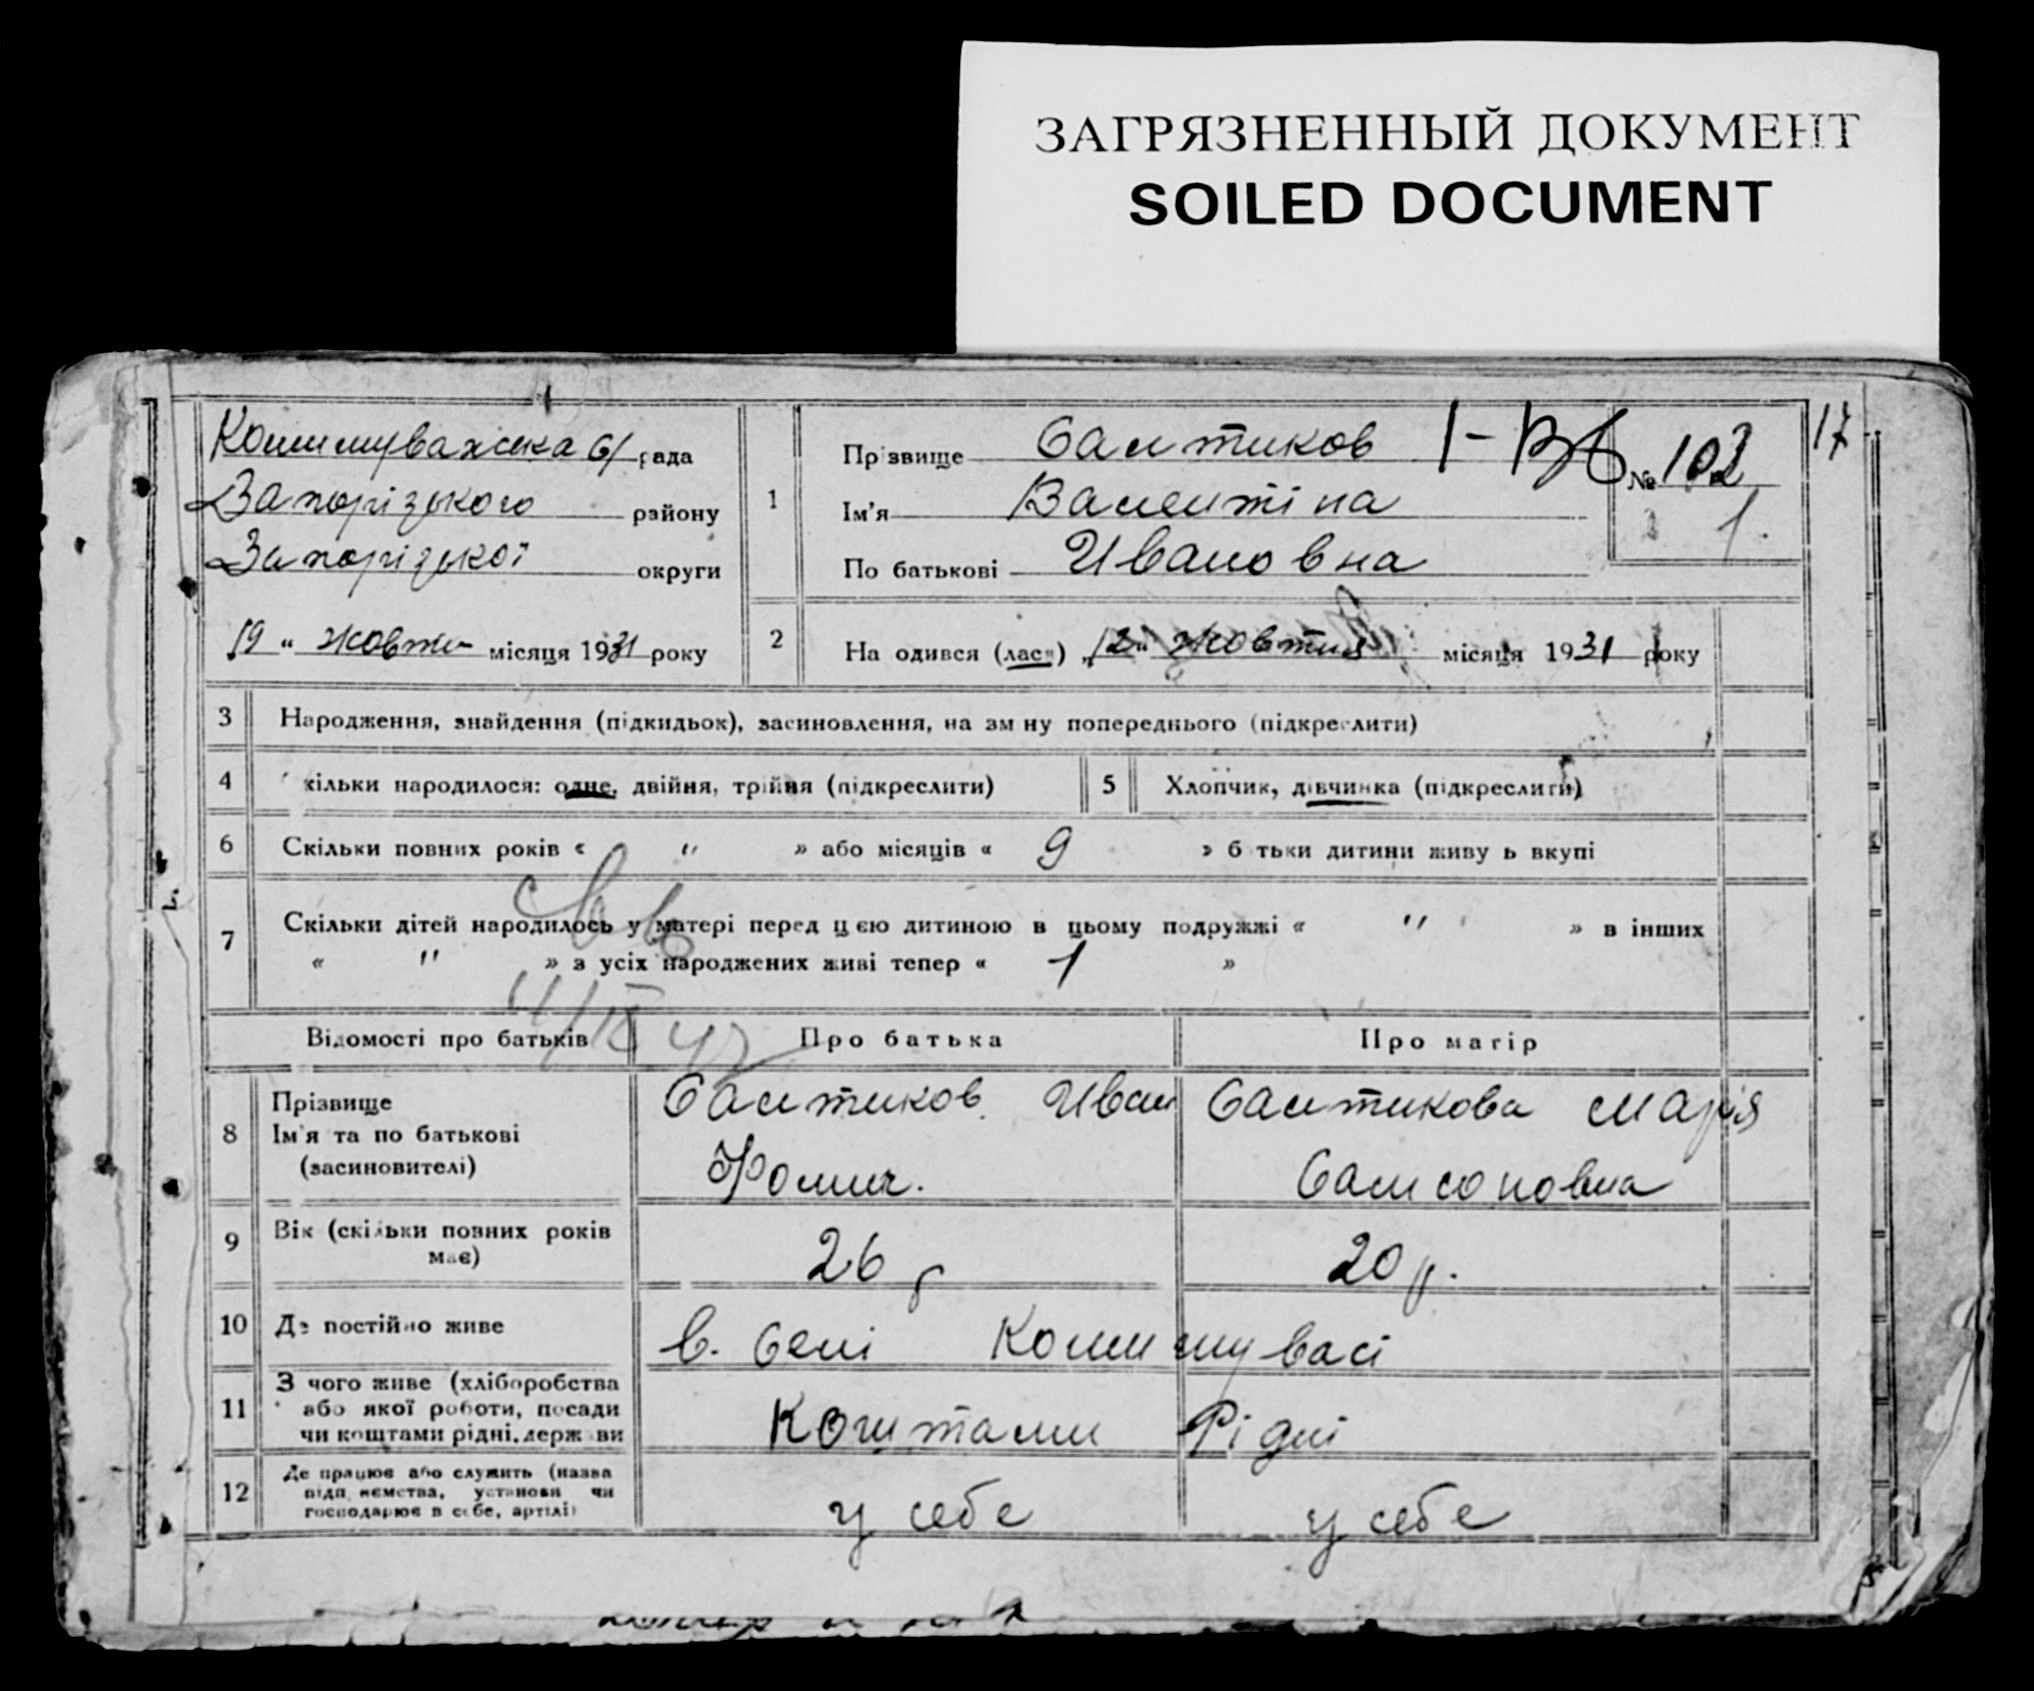 ЗАГРЯЗНЕННЫЙ ДОКУМЕНТ
SOILED DOCUMENT
17
Комишувахська С/ рада
Запорізького району
Запорізької округи
19 " жовтн місяця 1931 року
1
Прізвище Салтиков 1-
Ім'я Валентіна
По батькові Ивановна
№ 102
1.
2 На одився (лася) „12" жовтня місяця 1931 року
3 Народження, знайдення (підкидьок), засиновлення, на зм ну попереднього (підкреслити)
4 кільки народилося: одне, двійня, трійня (підкреслити)
5 Хлопчик, дівчинка (підкреслити)
6 Скільки повних років « " » або місяців « 9 » б тьки дитини живу ь вкупі
7 Скільки дітей народилось у матері перед цєю дитиною в цьому подружжі « " » в інших
« " » з усіх народжених живі тепер « 1 »
Відомості про батьків Про батька Про матір
8 Прізвище
Ім'я та по батькові
(засиновителі)
Салтиков Иван
Фомич.
Салтикова Марія
Самсоновна
9 Вік (скільки повних років
має)
26 р
20 р.
10 Де постійно живе
в. Селі Комишувасі
11 З чого живе (хліборобства
або якої роботи, посади
чи коштами рідні, держ ви
Коштами Рідні
12 Де працює або служить (назва
підп ємства, установи чи
господарює в себе, артілі)
у себе у себе